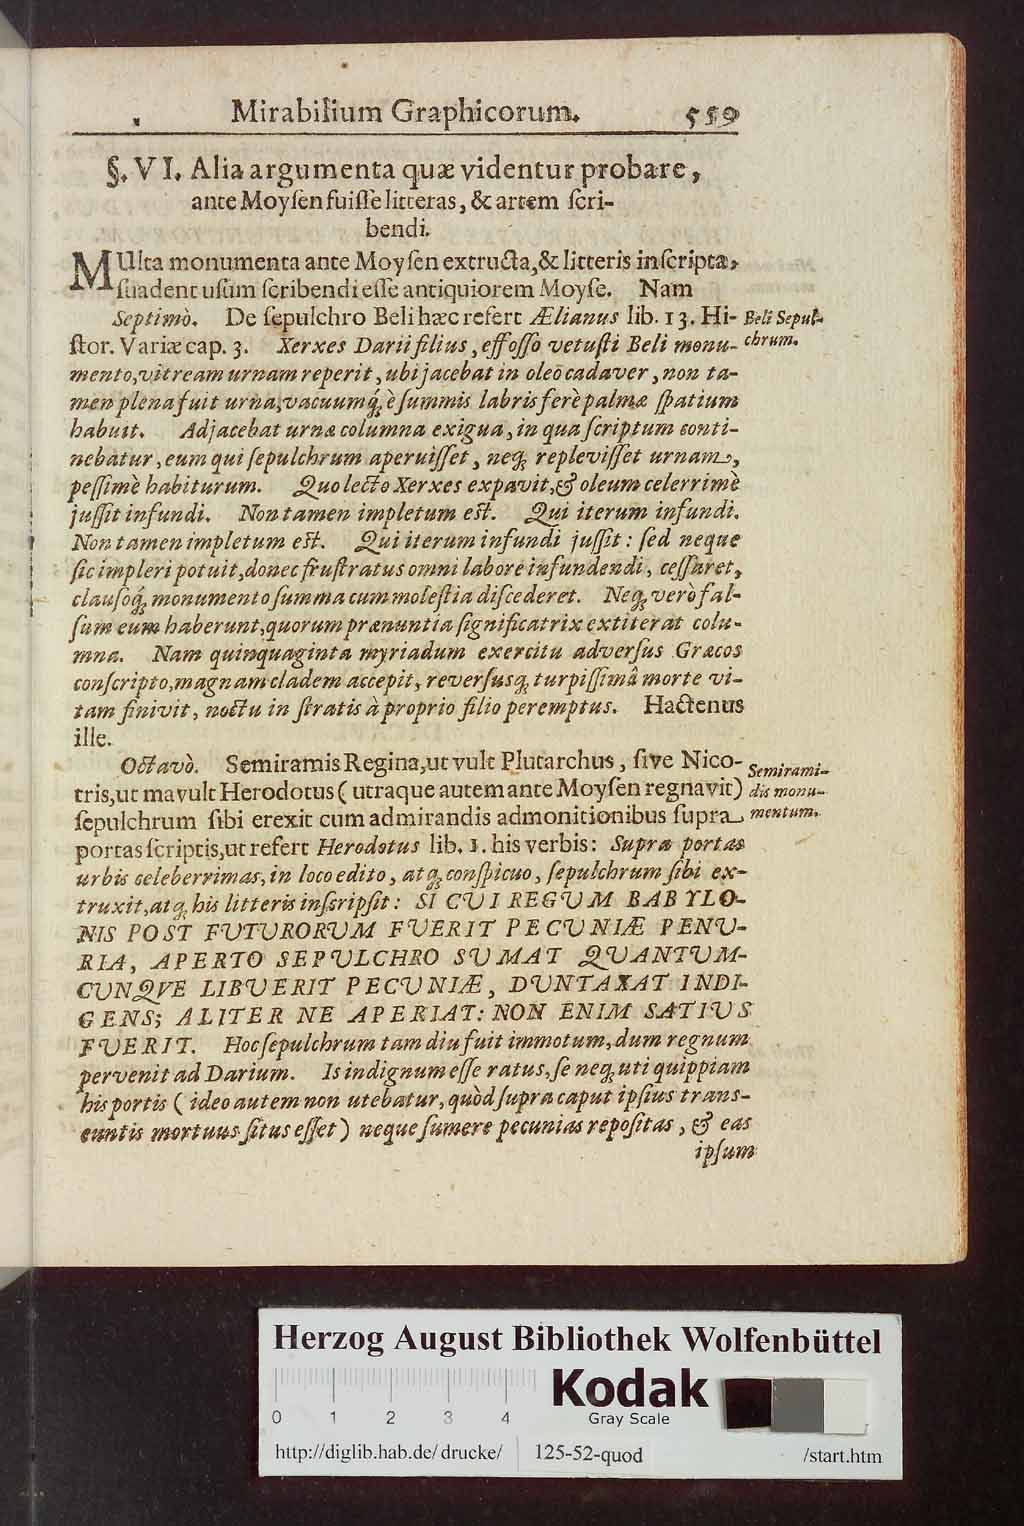 Mirabilium Graphicorum. 559
§. VI. Alia argumenta quæ videntur probare,
ante Moysen fuisse litteras, & artem scri-
bendi.
MUlta monumenta ante Moysen extructa, & litteris inscripta,
suadent usum scribendi esse antiquiorem Moyse. Nam
Septimò. De sepulchro Beli hæc refert Ælianus lib. 13. Hi-
stor. Variæ cap. 3. Xerxes Darii filius, effosso vetusti Beli monu-
mento, vitream urnam reperit, ubi jacebat in oleō cadaver, non ta-
men plena fuit urna, vacuumq́; è summis labris ferè palmæ spatium
habuit. Adjacebat urnæ columna exigua, in qua scriptum conti-
nebatur, eum qui sepulchrum aperuisset, neq; replevisset urnam,
pessimè habiturum. Quo lecto Xerxes expavit, & oleum celerrimè
jussit infundi. Non tamen impletum est. Qui iterum infundi.
Non tamen impletum est. Qui iterum infundi jussit: sed neque
sic impleri potuit, donec frustratus omni labore infundendi, cessaret,
clausoq́; monumento summa cum molestia discederet. Neq; verò fal-
sum eum haberunt, quorum prænuntia significatrix extiterat colu-
mna. Nam quinquaginta myriadum exercitu adversus Græcos
conscripto, magnam cladem accepit, reversusq; turpissimâ morte vi-
tam finivit, noctu in stratis à proprio filio peremptus. Hactenus
ille.
Beli Sepul-
chrum.
Octavò. Semiramis Regina, ut vult Plutarchus, sive Nico-
tris, ut mavult Herodotus ( utraque autem ante Moysen regnavit )
sepulchrum sibi erexit cum admirandis admonitionibus supra
portas scriptis, ut refert Herodotus lib. 1. his verbis: Supra portas
urbis celeberrimas, in loco edito, atq; conspicuo, sepulchrum sibi ex-
truxit, atq; his litteris inscripsit: SI CUI REGUM BABYLO-
NIS POST FUTURORUM FUERIT PECUNIÆ PENU-
RIA, APERTO SEPULCHRO SUMAT QUANTUM-
CUNQVE LIBUERIT PECUNIÆ, DUNTAXAT INDI-
GENS; ALITER NE APERIAT: NON ENIM SATIUS
FUERIT. Hoc sepulchrum tam diu fuit immotum, dum regnum
pervenit ad Darium. Is indignum esse ratus, se neq; uti quippiam
his portis ( ideo autem non utebatur, quòd supra caput ipsius trans-
euntis mortuus situs esset ) neque sumere pecunias repositas, & eas
ipsum
Semirami-
dis monu-
mentum.
Herzog August Bibliothek Wolfenbüttel
0 1 2 3 4
Kodak
Gray Scale
http://diglib.hab.de/ drucke/ 125-52-quod /start.htm